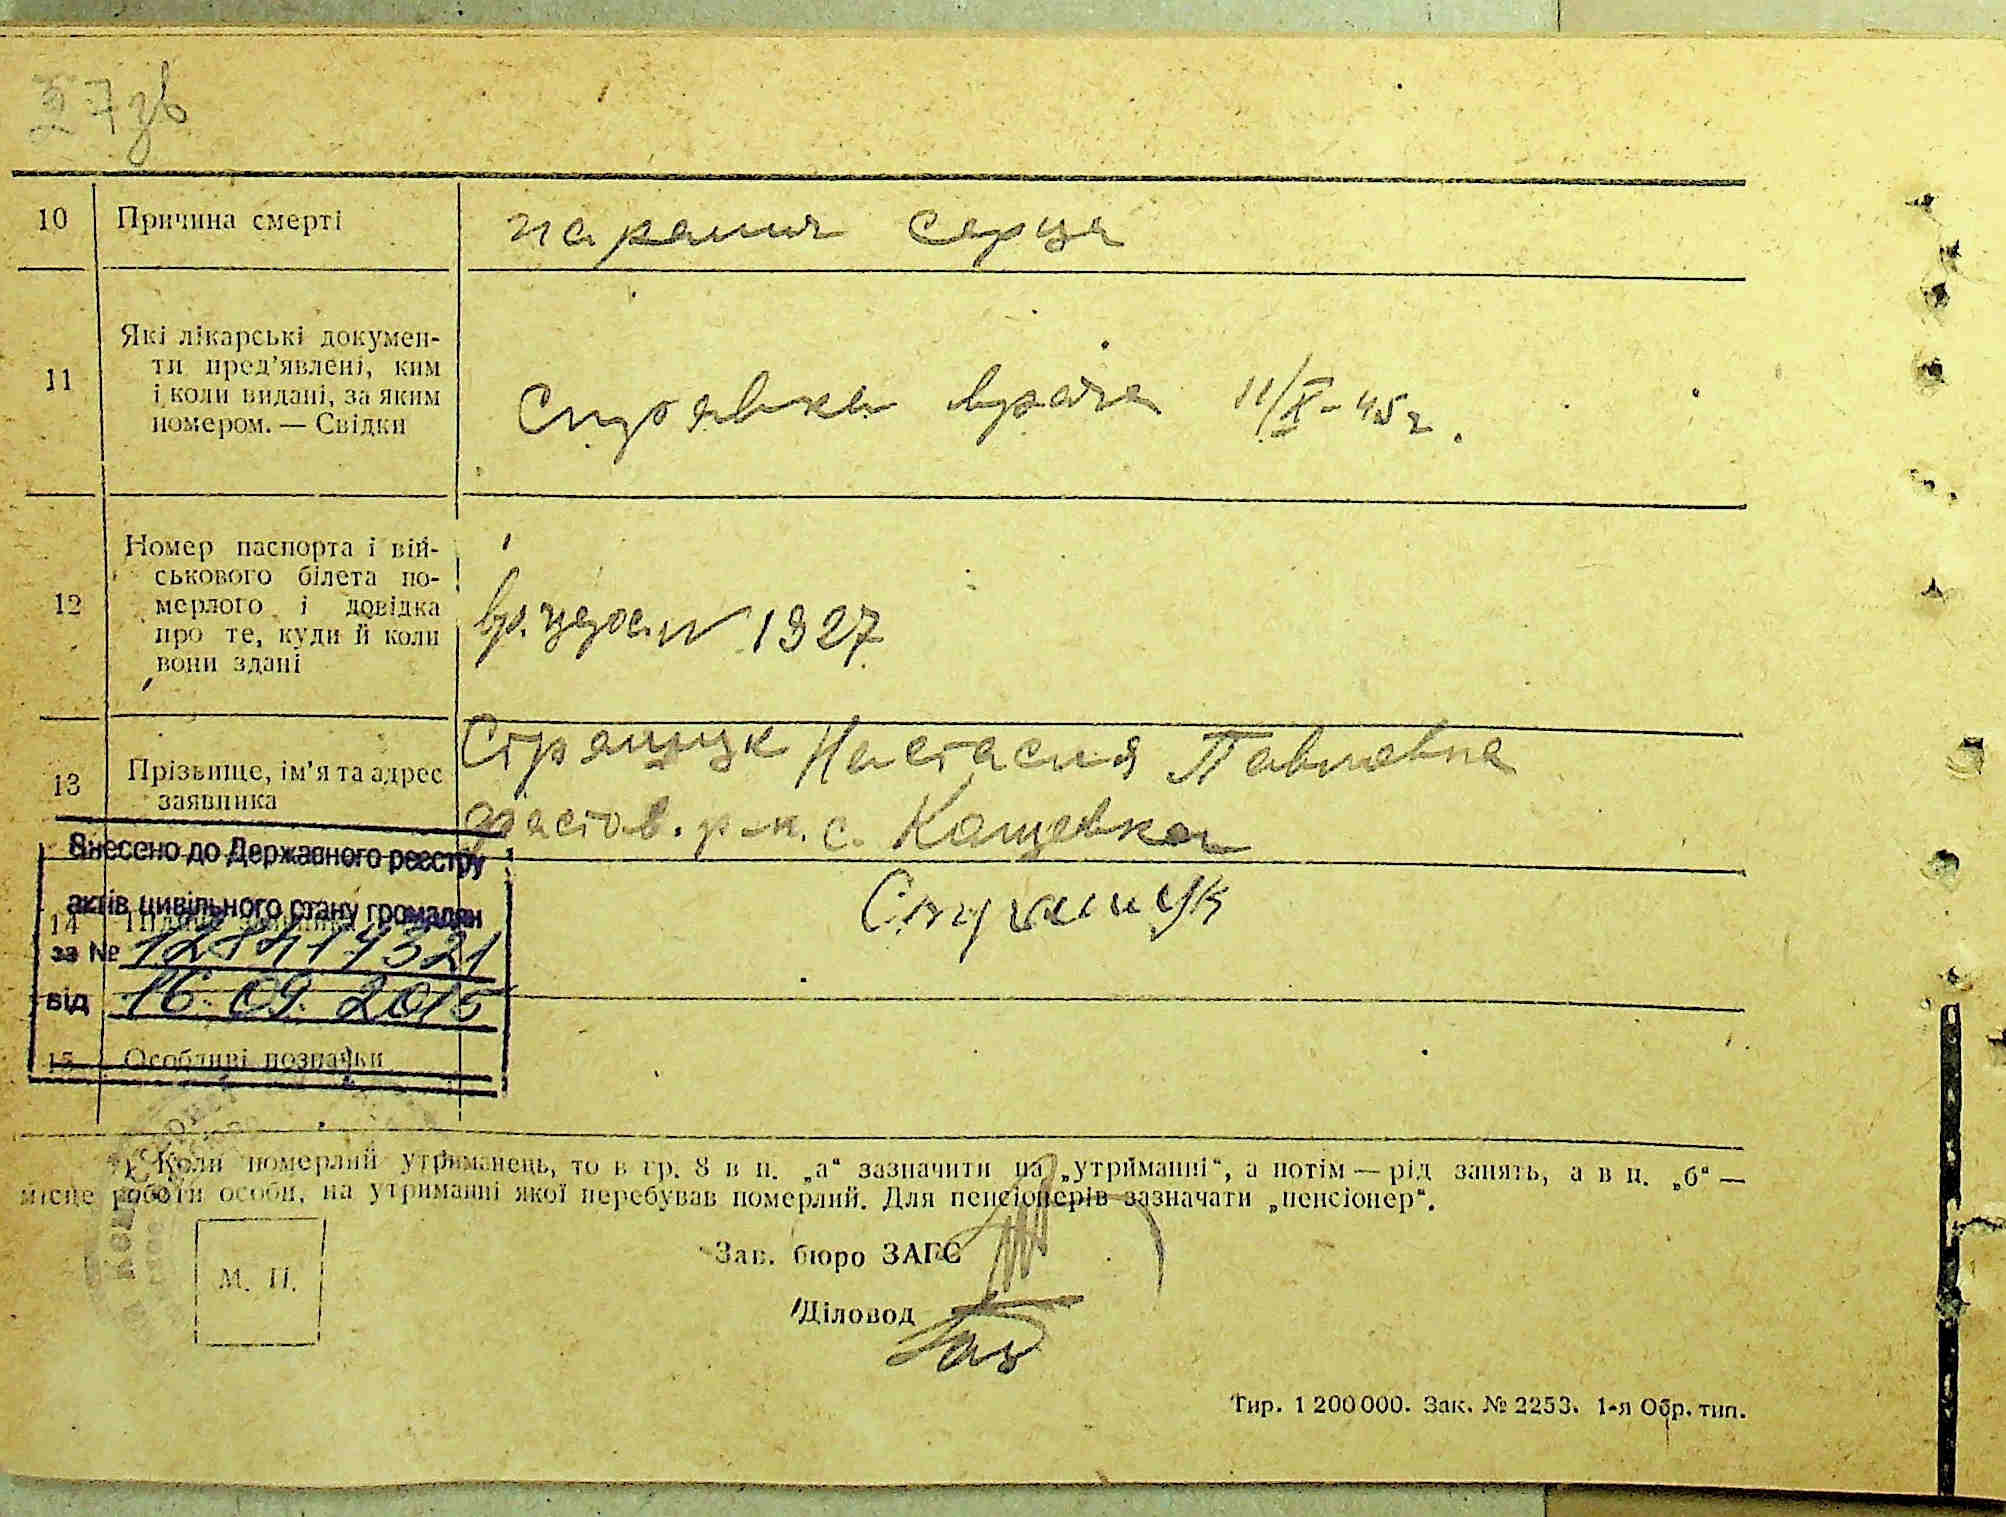 37зв
10 Причина смерті паралич серца
11 Які лікарські докумен-
ти пред’явлені, ким
і коли видані, за яким
номером. — Свідки
Справка врача 11/X-45г.
12 Номер паспорта і вій-
ськового білета по-
мерлого і довідка
про те, куди й коли
вони здані
вр. удост 1927
13 Прізвище, ім’я та адрес
заявника
Настасия Павловна
Фастов. р-н. с. Кощевка
Внесено до Державного реєстру
актів цивільного стану громадян
14
за №
від 16.09.2015
15 Особливі позначки
*) Коли померлий утриманець, то в гр. 8 в п. „а“ зазначити на „утриманні“, а потім — рід занять, а в п. „б“ —
місце роботи особи, на утриманні якої перебував померлий. Для пенсіонерів зазначати „пенсіонер“.
М. П.
Зав. бюро ЗАГС
Діловод
Тир. 1 200 000. Зак. № 2253. 1-я Обр. тип.